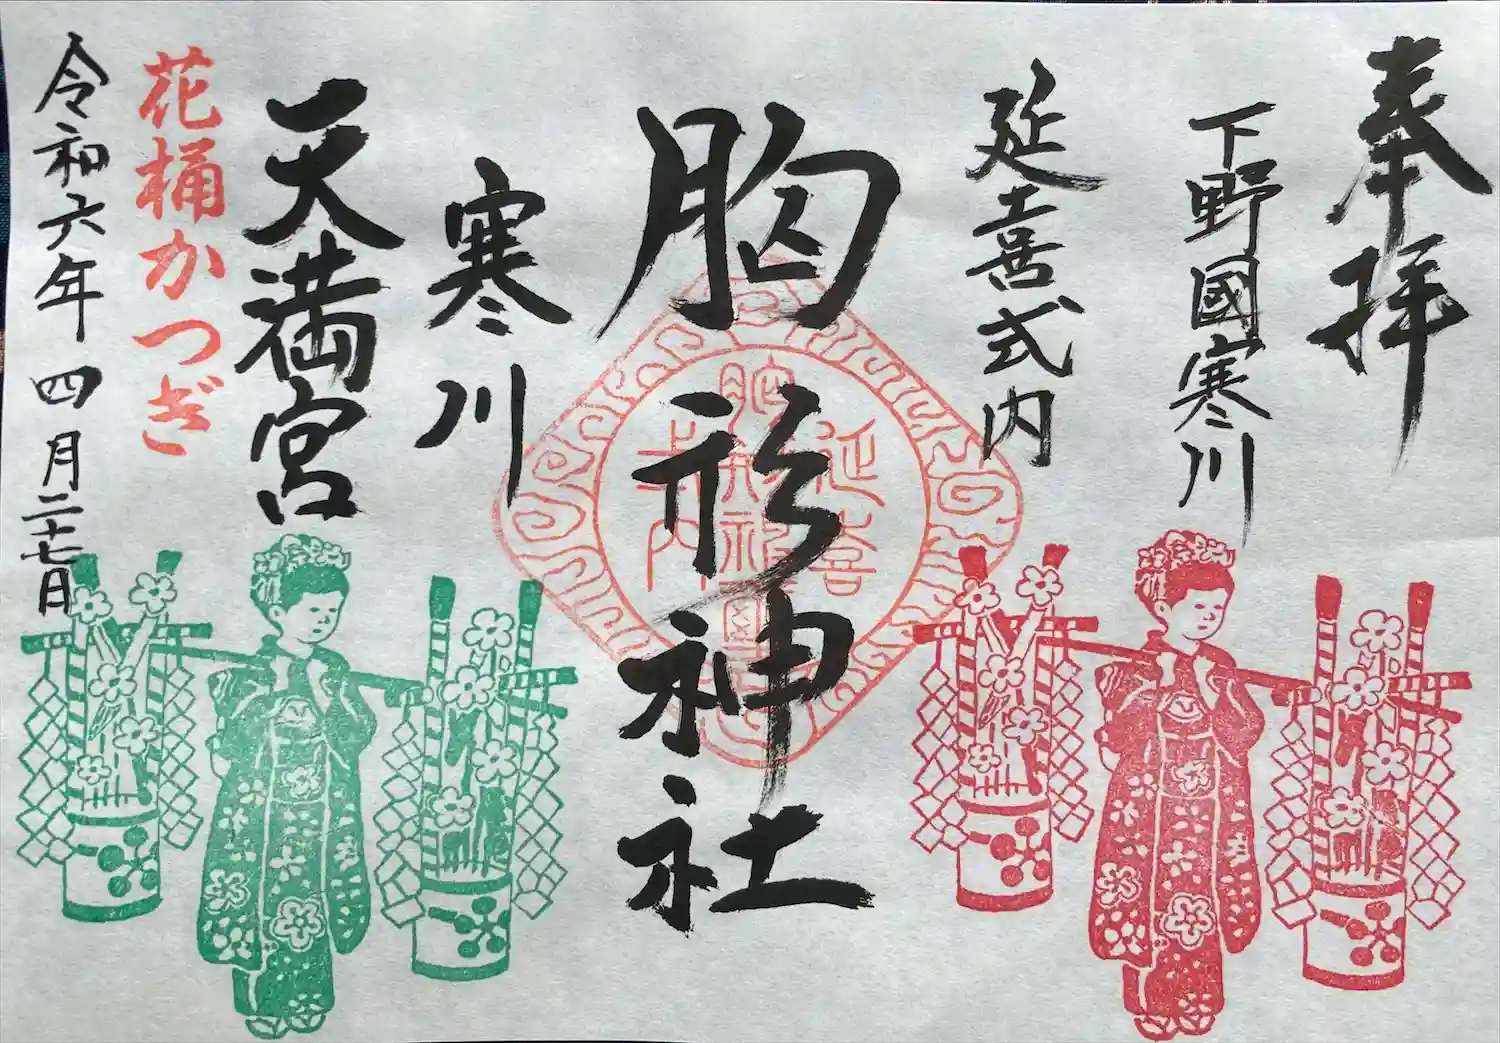 奉拝
下野國寒川
延喜式内
胸形神社
寒川
天満宮
花桶かつぎ
令和六年四月二十七日
延喜
式内